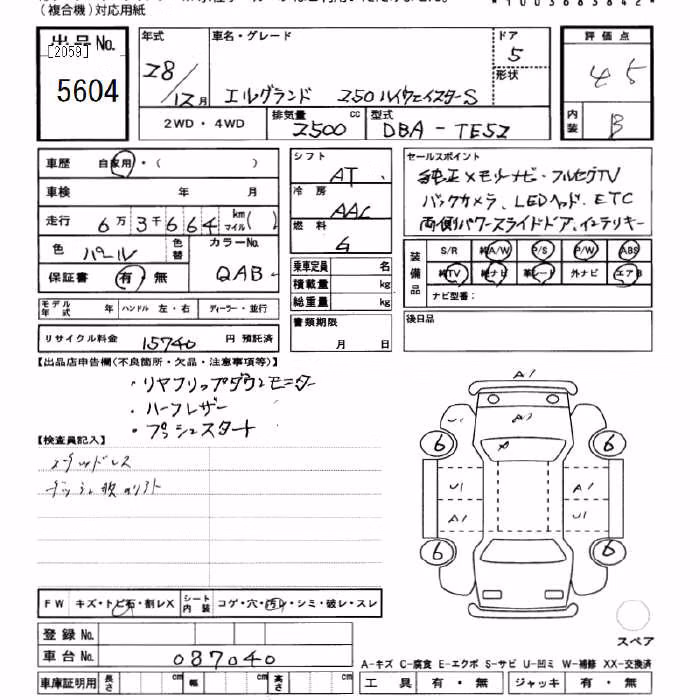 (複合機)対応用紙
*1003683842*
出品No.
[2059]
5604
年式
28/12月
車名・グレード
エルグランド 250ハイウェイスターS
ドア
5
形状
2WD・4WD
排気量 2500 cc
型式 DBA-TE52
評価点
4.5
内装
B
車歴 自家用・( )
車検 年 月
走行 6万3千664km マイル( )
色 パール 色替
カラーNo. QAB
保証書 有 無
モデル年式 年 ハンドル 左・右 ディーラー・並行
リサイクル料金 15740 円 預託済
シフト AT
冷房 AAC
燃料 G
乗車定員 名
積載量 kg
総重量 kg
書類期限
月 日
セールスポイント
純正メモリーナビ・フルセグTV
バックカメラ、LEDヘッド、ETC
両側パワースライドドア、インテリキー
装備品
S/R 純A/W P/S P/W ABS
純TV 純ナビ 革シート 外ナビ エアB
ナビ型番:
後日品
【出品店申告欄(不良箇所・欠品・注意事項等)】
・リヤフリップダウンモニター
・ハーフレザー
・プッシュスタート
【検査員記入】
A1
U1
6
6
U1
A1
A1
U1
6
6
FW キズ・トビ石・割レX シート内装 コゲ・穴・汚レ・シミ・破レ・スレ
登録No.
車台No. 037040
車庫証明用 長さ cm 幅 cm 高さ cm
スペア
A-キズ C-腐食 E-エクボ S-サビ U-凹ミ W-補修 XX-交換済
工具 有・無 ジャッキ 有・無